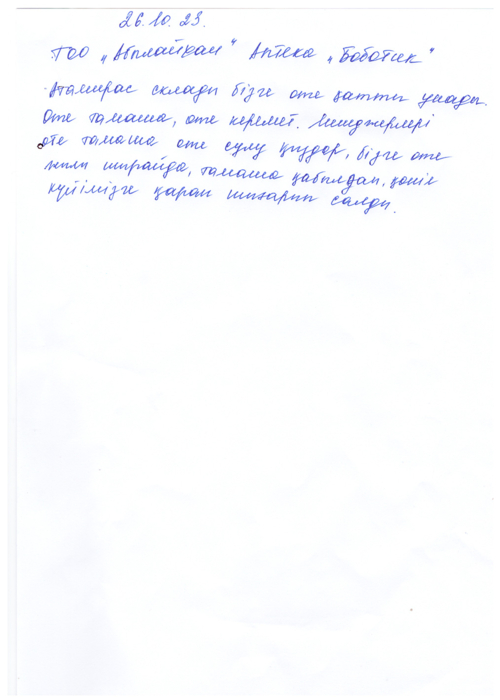 26.10.23.
ТОО „Абылайхан" Аптека „Боботик"
Атамирас склады бізге оте қатты ұнады.
Оте тамаша, оте керемет. Менеджерлері
оте тамаша оте сұлу қыздар, бізге оте
жылы шырайда, тамаша қабылдап, көңіл
күйімізге қарап шығарып салды.